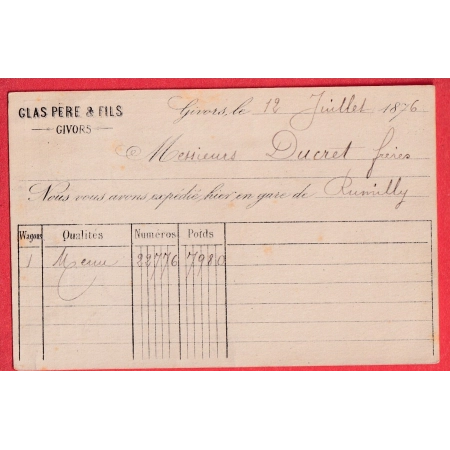 GLAS PÈRE & FILS
GIVORS
Givors, le 12 Juillet 1876
Messieurs Ducret frères
Nous vous avons expédié, hier en gare de Rumilly
Wagons Qualités Numéros Poids
1 Menu 22776 7980